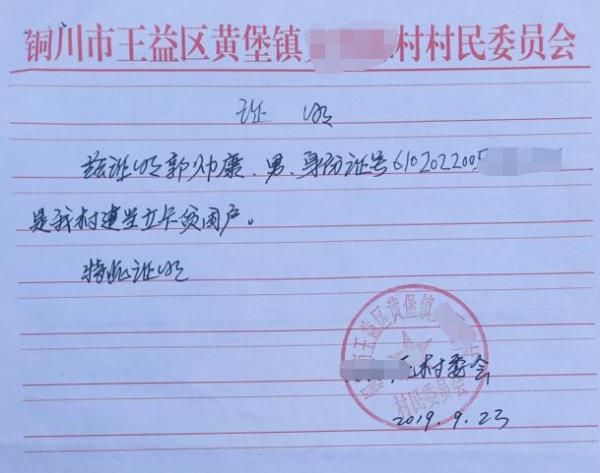 铜川市王益区黄堡镇 村村民委员会
证 明
兹证明郭帅康、男、身份证号6102022005
是我村建登立卡贫困户。
特此证明
市王益区黄堡镇
村民委员会
村委会
2019.9.23